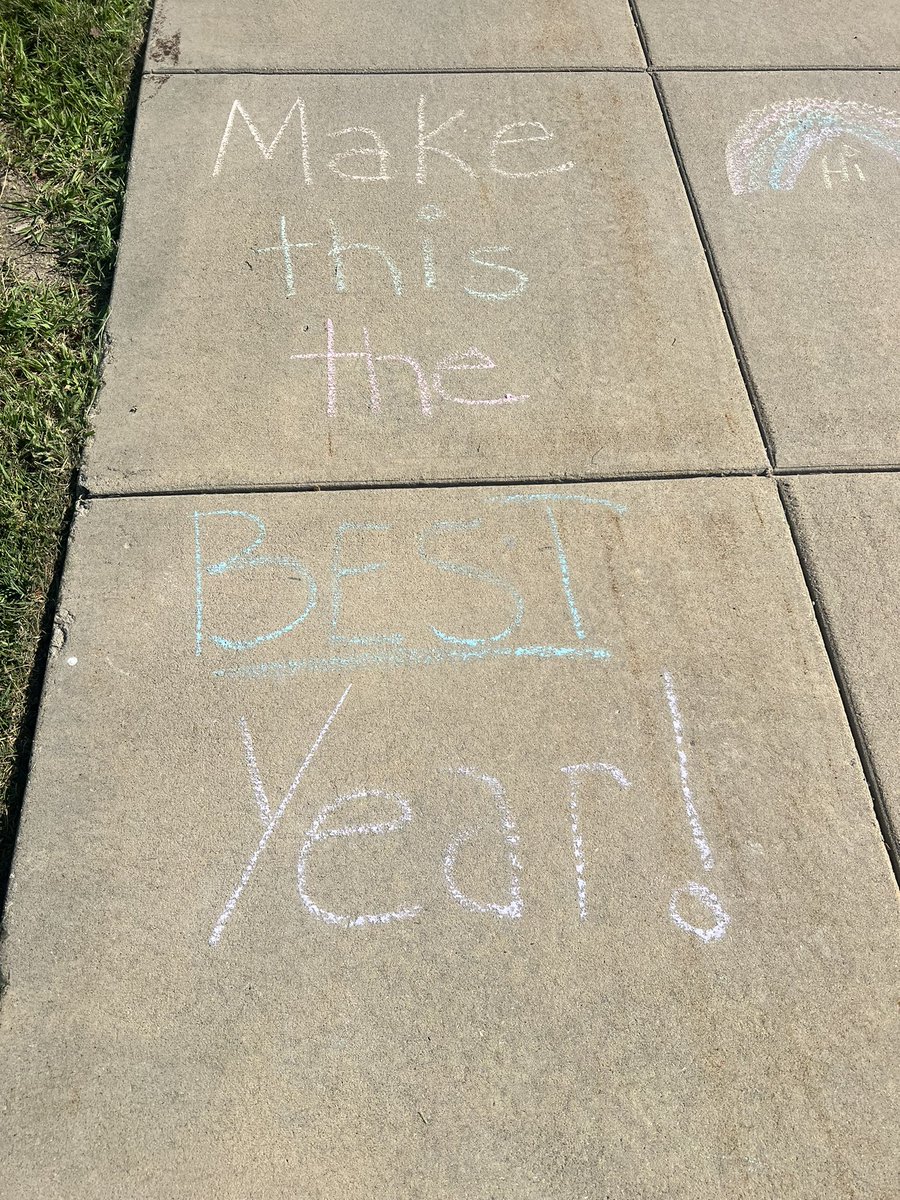 Make
this
the
BEST
Year!
Hi